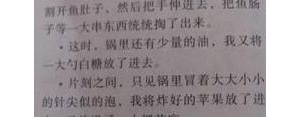 割开鱼肚子、然后把手伸进去，把鱼肠
子等一大串东西统统掏了出来。
·这时，锅里还有少量的油，我又将
一大勺白糖放了进去。
·片刻之间，只见锅里冒着大大小小
的针尖似的泡，我将炸好的苹果放了进